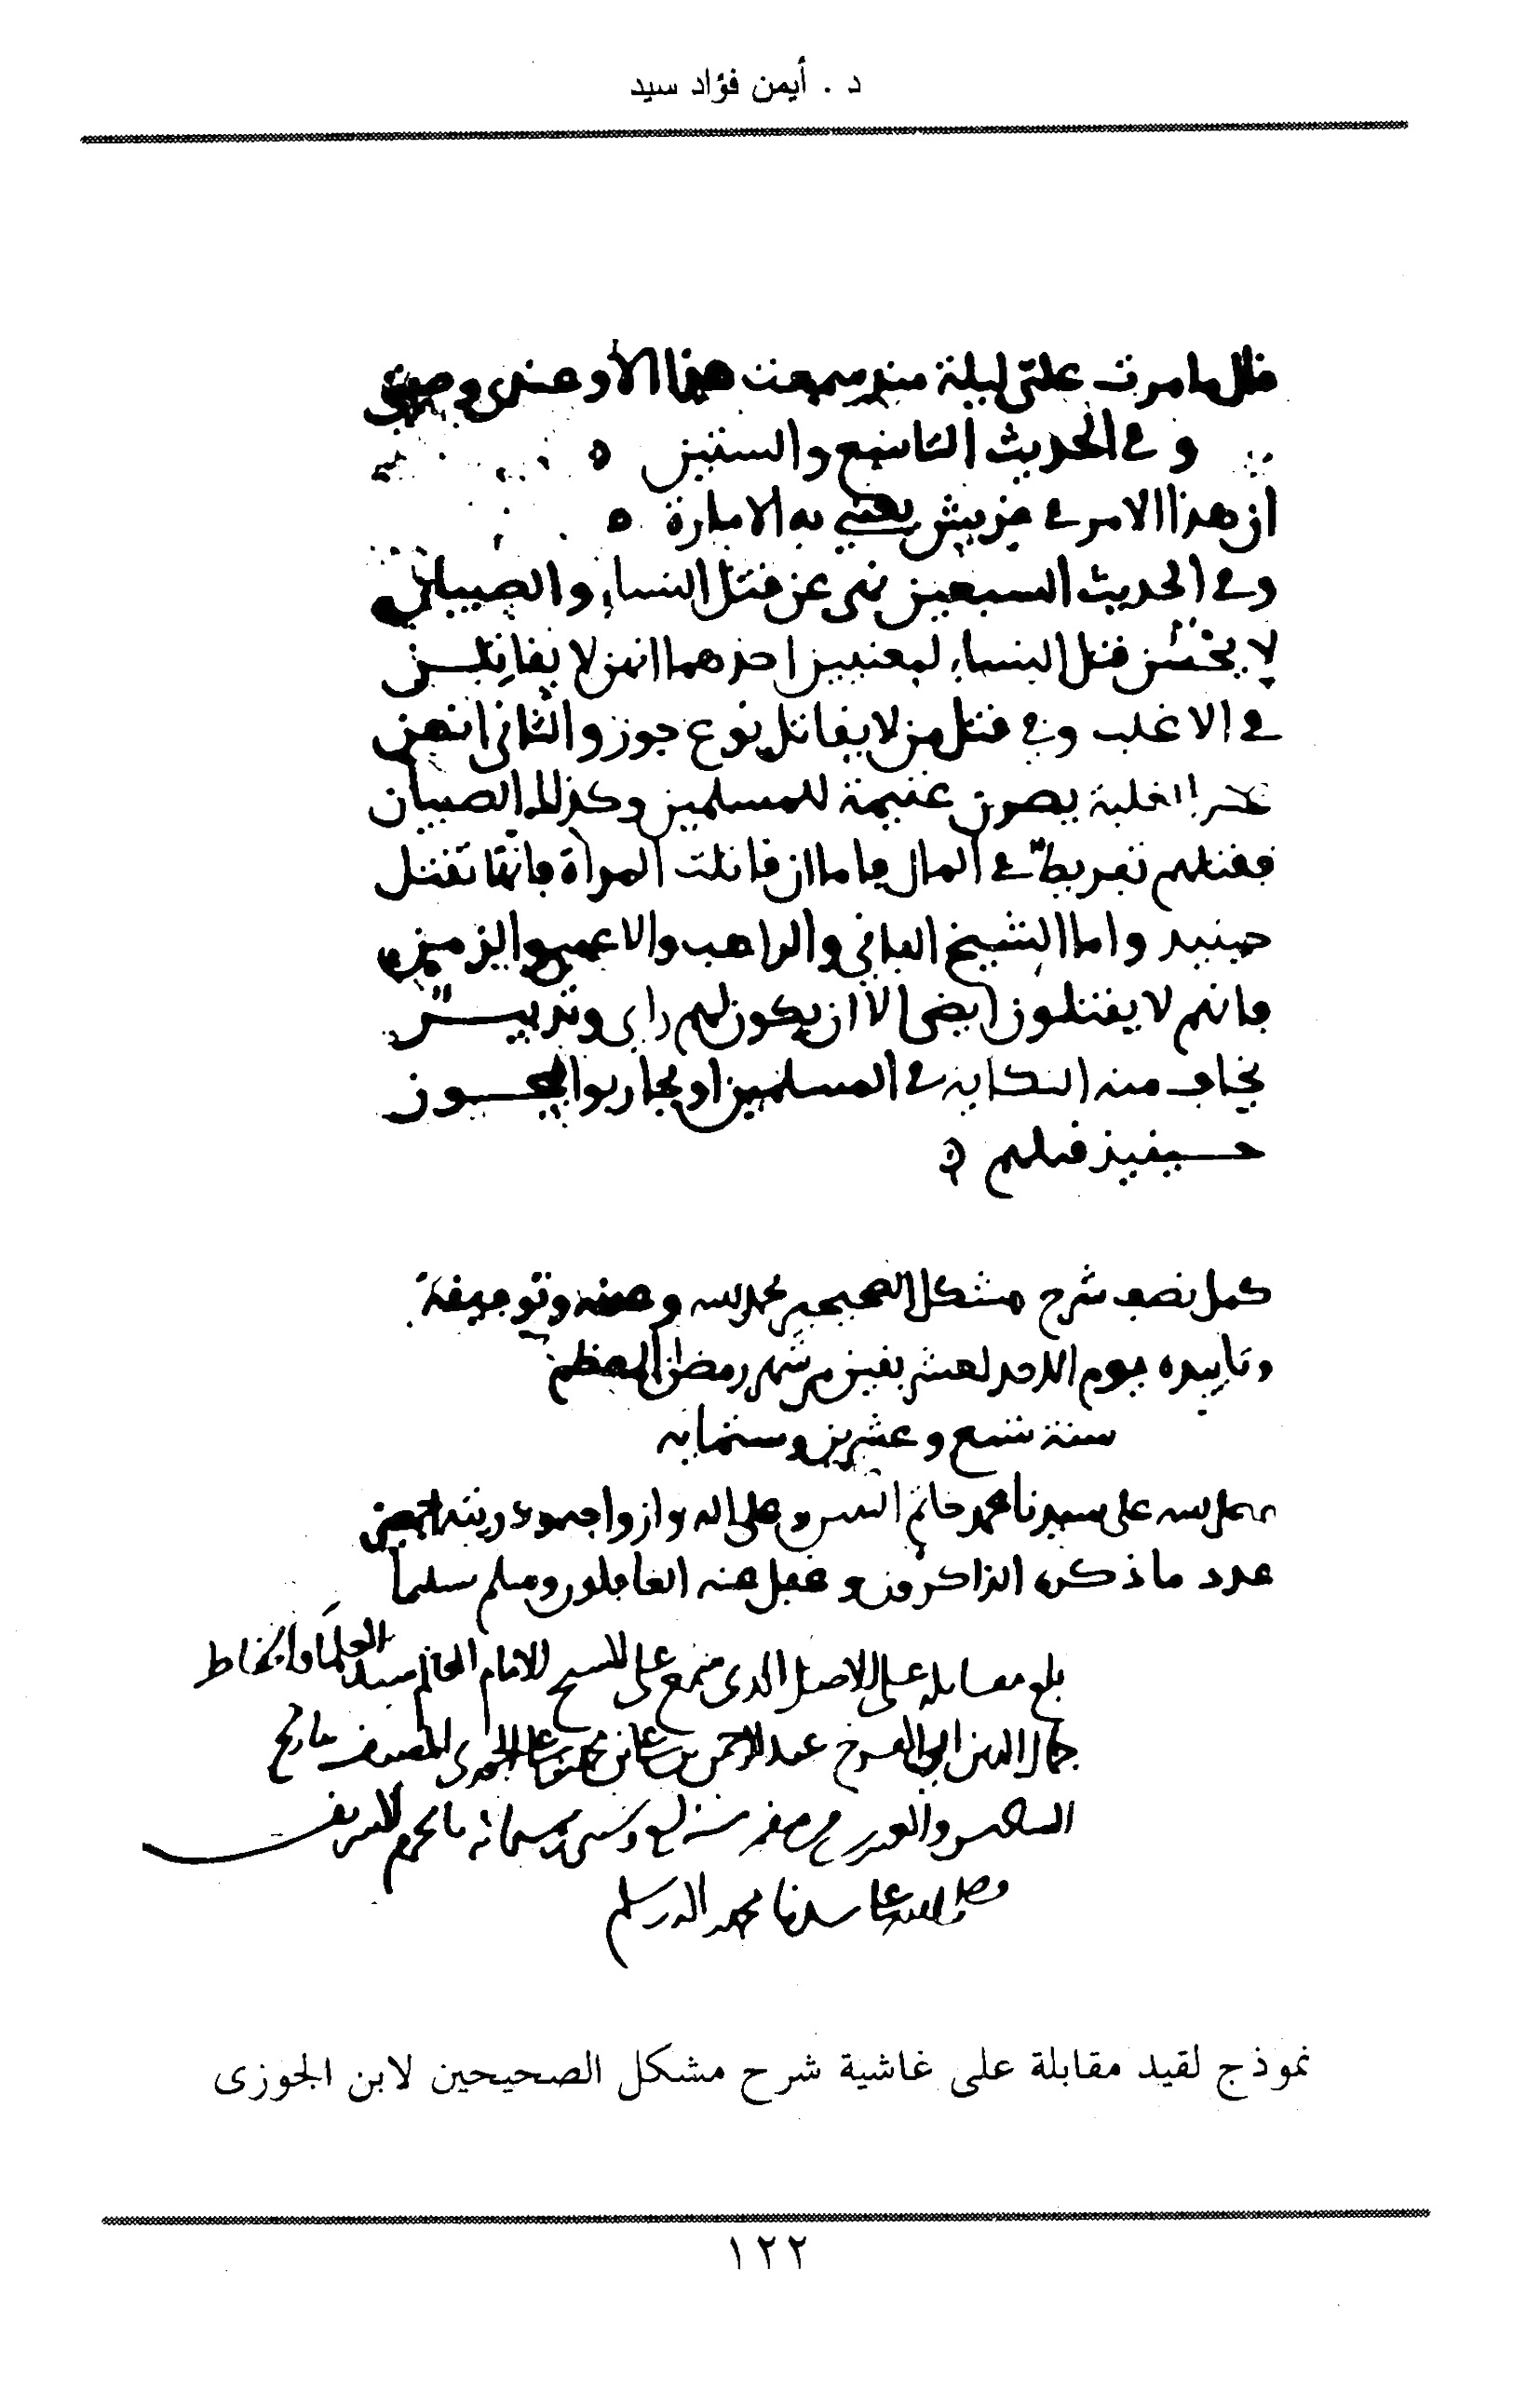 د . أيمن فؤاد سيد
قال ما مرت علي ليلة منذ سمعت هذا الا وعندي وصيتي
وفي الحديث التاسع والستين ه
ان هذا الامر في قريش يعني به الامارة ه
وفي الحديث السبعين نهى عن قتل النساء والصبيان
لا يحسن قتل النساء لمعنيين احدهما انهن لا يقاتلن
في الاغلب وفي قتل من لا يقاتل نوع جور والثاني انهن
عند الغلبة يصرن غنيمة للمسلمين وكذلك الصبيان
فقتلهم تفريط في المال فاما ان قاتلت المرأة فانها تقتل
حينيذ واما الشيخ الفاني والراهب والاعمى والزمن
فانهم لا يقتلون ايضا الا ان يكون لهم راي وتدبير
يخاف منه النكاية في المسلمين او يحاربوا فيجوز
حينيذ قتلهم ه
كمل نصف شرح مشكل الصحيحين بحمد الله ومنه وتوفيقه
وتاييده يوم الاحد لعشر بقين من شهر رمضان المعظم
سنة تسع وعشرين وستماية
على سيدنا محمد خاتم النبيين وعلى اله وازواجه وذريته اجمعين
عدد ما ذكره الذاكرون وغفل عنه الغافلون وسلم تسليما
بلغ مقابلة على الاصل الذي سمع على الشيخ الامام العالم سيد العلما والحفاظ
جمال الدين ابي الفرج عبد الرحمن بن علي بن محمد بن علي الجوزي المصنف بتاريخ
من صفر سنة
وصلى الله على سيدنا محمد واله وسلم
نموذج لقيد مقابلة على غاشية شرح مشكل الصحيحين لابن الجوزى
١٢٢